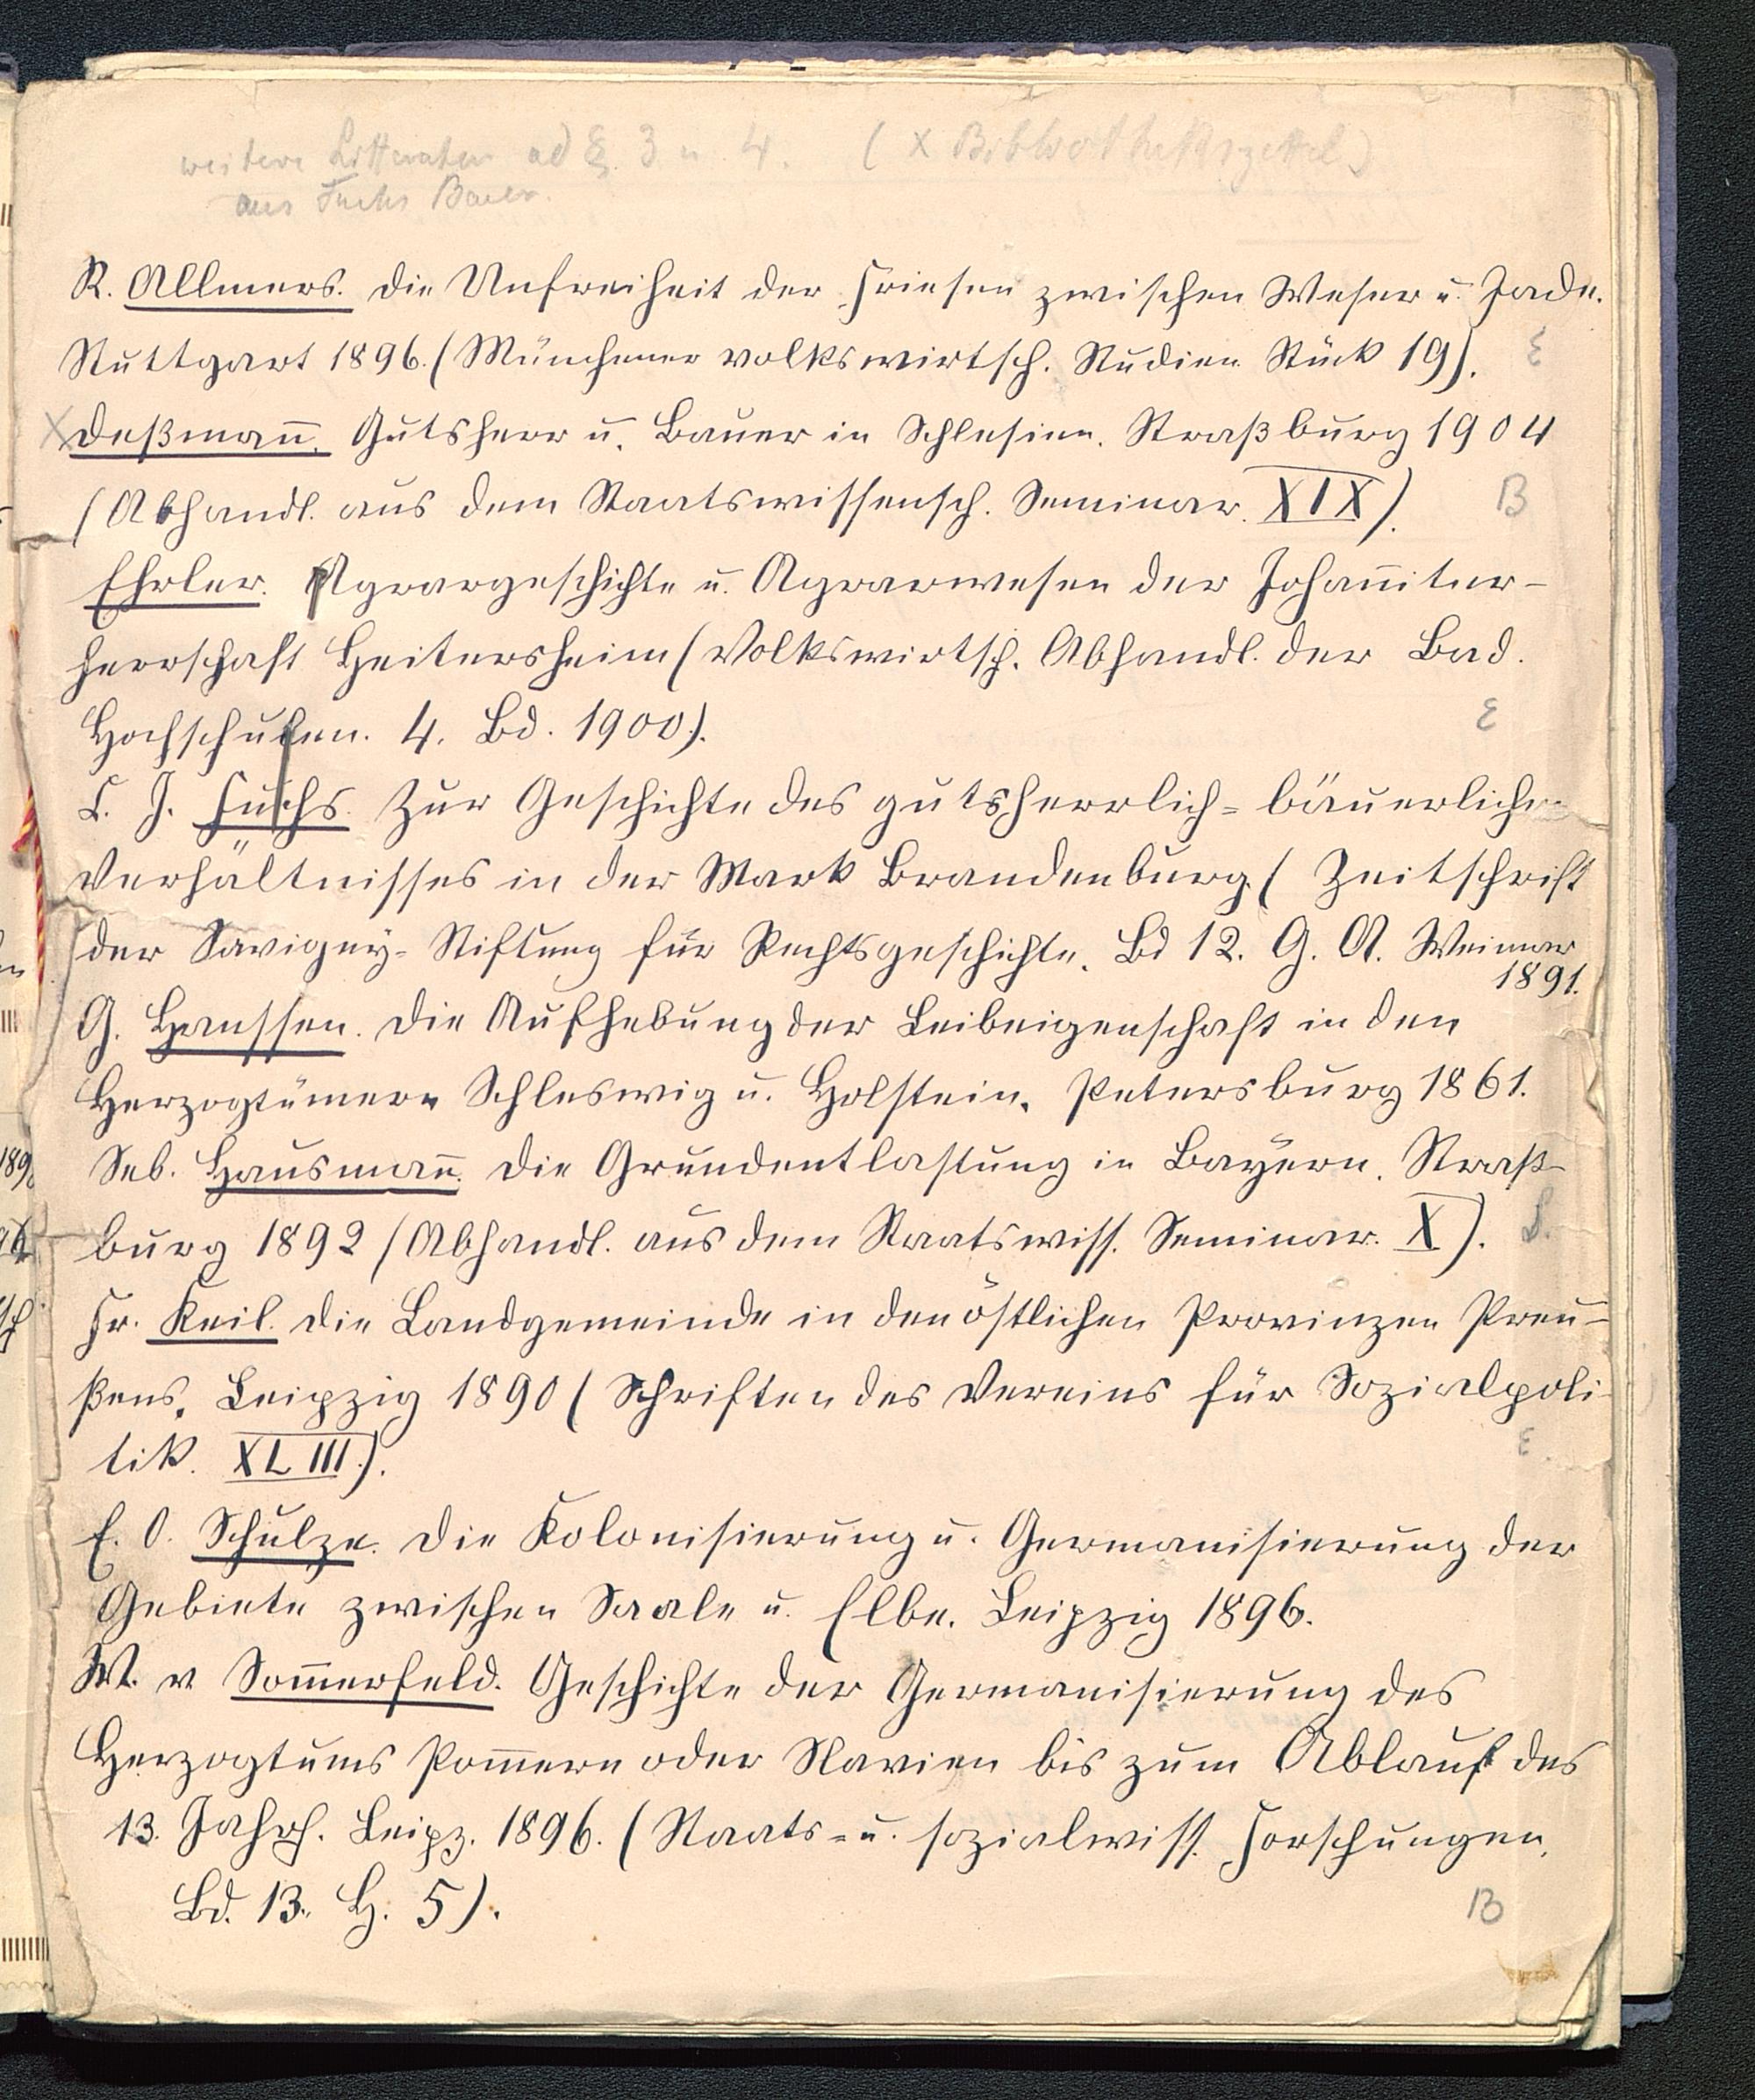 weitere Litteratur ad §. 3 u. 4. (X Bibliothekszettel)
aus Fuchs Bauer.
R. Allmers. Die Unfreiheit der Friesen zwischen Weser u. Jade.
Stuttgart 1896. (Münchener volkswirtsch. Studien Stück 19). E
X Deßmann. Gutsherr u. Bauer in Schlesien. Straßburg 1904
(Abhandl. aus dem Staatswissensch. Seminar. XIX). B
Ehrler. Agrargeschichte u. Agrarwesen der Johanniter-
herrschaft Heitersheim (Volkswirtsch. Abhandl. der Bad.
Hochschulen. 4. Bd. 1900). E
C. J. Fuchs. Zur Geschichte des gutsherrlich-bäuerlichen
Verhältnisses in der Mark Brandenburg (Zeitschrift
der Savigny-Stiftung für Rechtsgeschichte. Bd 12. G. A. Weimar
1891.
G. Hanssen. Die Aufhebung der Leibeigenschaft in den
Herzogtümern Schleswig u. Holstein. Petersburg 1861.
Seb. Hausmann. Die Grundentlastung in Bayern. Straß-
burg 1892 (Abhandl. aus dem Staatswiss. Seminar. X).
Fr. Keil. Die Landgemeinde in den östlichen Provinzen Preu-
ßens. Leipzig 1890 (Schriften des Vereins für Sozialpoli-
tik. XLIII). E.
E. O. Schulze. Die Kolonisierung u. Germanisierung der
Gebiete zwischen Saale u. Elbe. Leipzig 1896.
W. v. Sommerfeld. Geschichte der Germanisierung des
Herzogtums Pommern oder Slavien bis zum Ablauf des
13. Jahrh. Leipz. 1896. (Staats- u. sozialwiss. Forschungen.
Bd. 13. H. 5). B